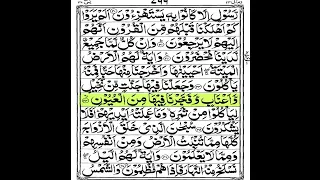 رَسُوْلٍ اِلَّا كَانُوْا بِهٖ يَسْتَهْزِءُوْنَ اَلَمْ يَرَوْا
كَمْ اَهْلَكْنَا قَبْلَهُمْ مِّنَ الْقُرُوْنِ اَنَّهُمْ
اِلَيْهِمْ لَا يَرْجِعُوْنَ وَاِنْ كُلٌّ لَّمَّا جَمِيْعٌ
لَّدَيْنَا مُحْضَرُوْنَ وَاٰيَةٌ لَّهُمُ الْاَرْضُ
الْمَيْتَةُ اَحْيَيْنٰهَا وَاَخْرَجْنَا مِنْهَا حَبًّا فَمِنْهُ
يَاْكُلُوْنَ وَجَعَلْنَا فِيْهَا جَنّٰتٍ مِّنْ نَّخِيْلٍ
وَّاَعْنَابٍ وَّفَجَّرْنَا فِيْهَا مِنَ الْعُيُوْنِ
لِيَاْكُلُوْا مِنْ ثَمَرِهٖ وَمَا عَمِلَتْهُ اَيْدِيْهِمْ اَفَلَا
يَشْكُرُوْنَ سُبْحٰنَ الَّذِيْ خَلَقَ الْاَزْوَاجَ
كُلَّهَا مِمَّا تُنْۢبِتُ الْاَرْضُ وَمِنْ اَنْفُسِهِمْ
وَمِمَّا لَا يَعْلَمُوْنَ وَاٰيَةٌ لَّهُمُ الَّيْلُ
نَسْلَخُ مِنْهُ النَّهَارَ فَاِذَا هُمْ مُّظْلِمُوْنَ وَالشَّمْسُ